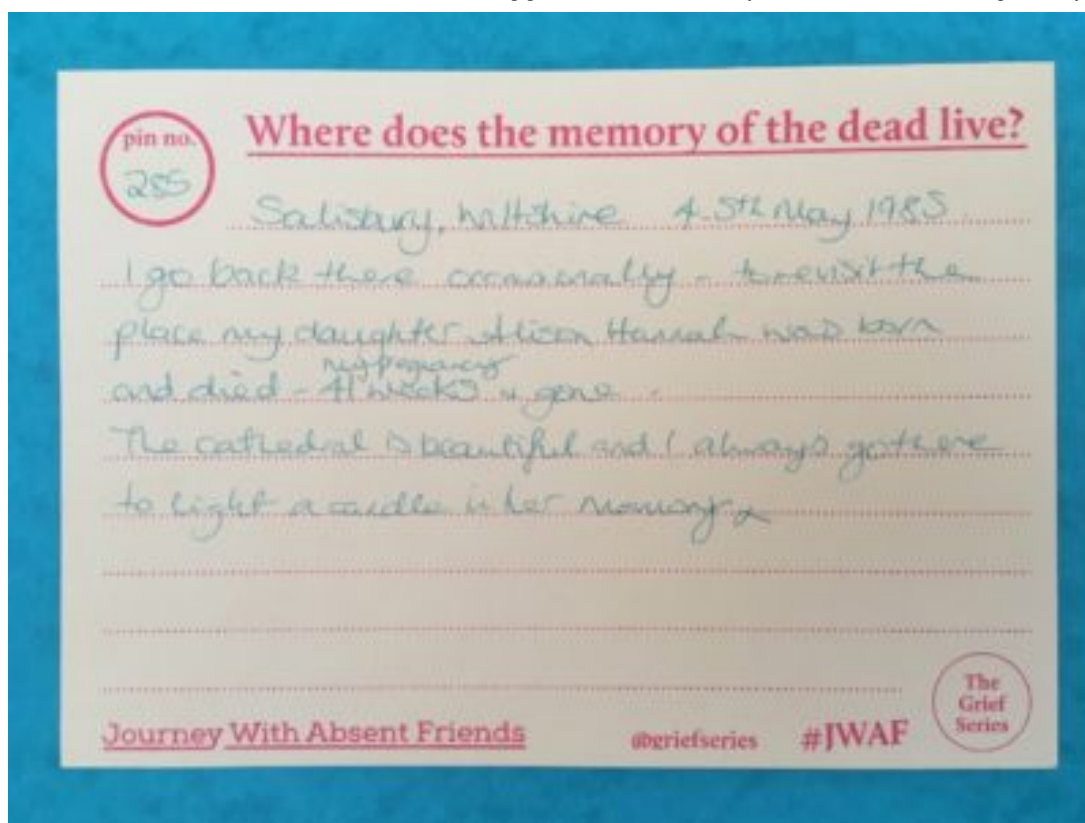 pin no.
285
Where does the memory of the dead live?
Salisbury, Wiltshire 4-5th May 1985
I go back there occasionally - to revisit the
place my daughter Alison Hannah was born
my pregnancy
and died - 41 weeks & gone.
The cathedral is beautiful and I always go there
to light a candle in her memory
Journey With Absent Friends
@griefseries
#JWAF
The
Grief
Series